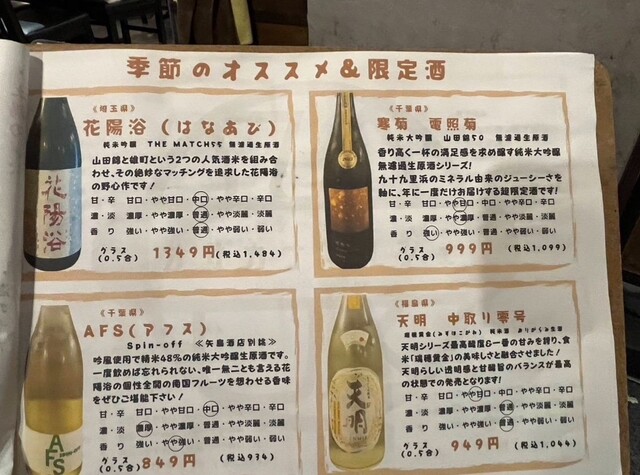 季節のオススメ＆限定酒
《埼玉県》
花陽浴（はなあび）
純米吟醸 THE MATCH55 無濾過生原酒
山田錦と雄町という2つの人気酒米を組み合
わせ、その絶妙なマッチングを追求した花陽浴
の野心作です！
甘・辛 甘口・やや甘口・中口・やや辛口・辛口
濃・淡 濃厚・やや濃厚・普通・やや淡麗・淡麗
香り 強い・やや強い・普通・やや弱い・弱い
グラス
(0.5合) 1349円 (税込1,484)
《千葉県》
寒菊 電照菊
純米大吟醸 山田錦50 無濾過生原酒
香り高く一杯の満足感を求め醸す純米大吟醸
無濾過生原酒シリーズ！
九十九里浜のミネラル由来のジューシーさを
軸に、年に一度だけお届けする超限定酒です！
甘・辛 甘口・やや甘口・中口・やや辛口・辛口
濃・淡 濃厚・やや濃厚・普通・やや淡麗・淡麗
香り 強い・やや強い・普通・やや弱い・弱い
グラス
(0.5合) 999円 (税込1,099)
《千葉県》
AFS(アフス)
Spin-off ≪矢島酒店別誂≫
吟風使用で精米48%の純米大吟醸生原酒です。
一度飲めば忘れられない、唯一無二とも言える花
陽浴の個性全開の南国フルーツを想わせる香味
をぜひご堪能下さい！
甘・辛 甘口・やや甘口・中口・やや辛口・辛口
濃・淡 濃厚・やや濃厚・普通・やや淡麗・淡麗
香り 強い・やや強い・普通・やや弱い・弱い
グラス
(0.5合) 849円 (税込934)
《福島県》
天明 中取り零号
瑞穂黄金(みずほこがね) 純米酒 おりがらみ生酒
天明シリーズ最高酸度&一番の甘みを誇り、食
米「瑞穂黄金」の美味しさと融合させました！
天明らしい透明感と甘酸旨のバランスが最高
の状態での発売となります！
甘・辛 甘口・やや甘口・中口・やや辛口・辛口
濃・淡 濃厚・やや濃厚・普通・やや淡麗・淡麗
香り 強い・やや強い・普通・やや弱い・弱い
グラス
(0.5合) 949円 (税込1,044)
花陽浴
AFS
天明